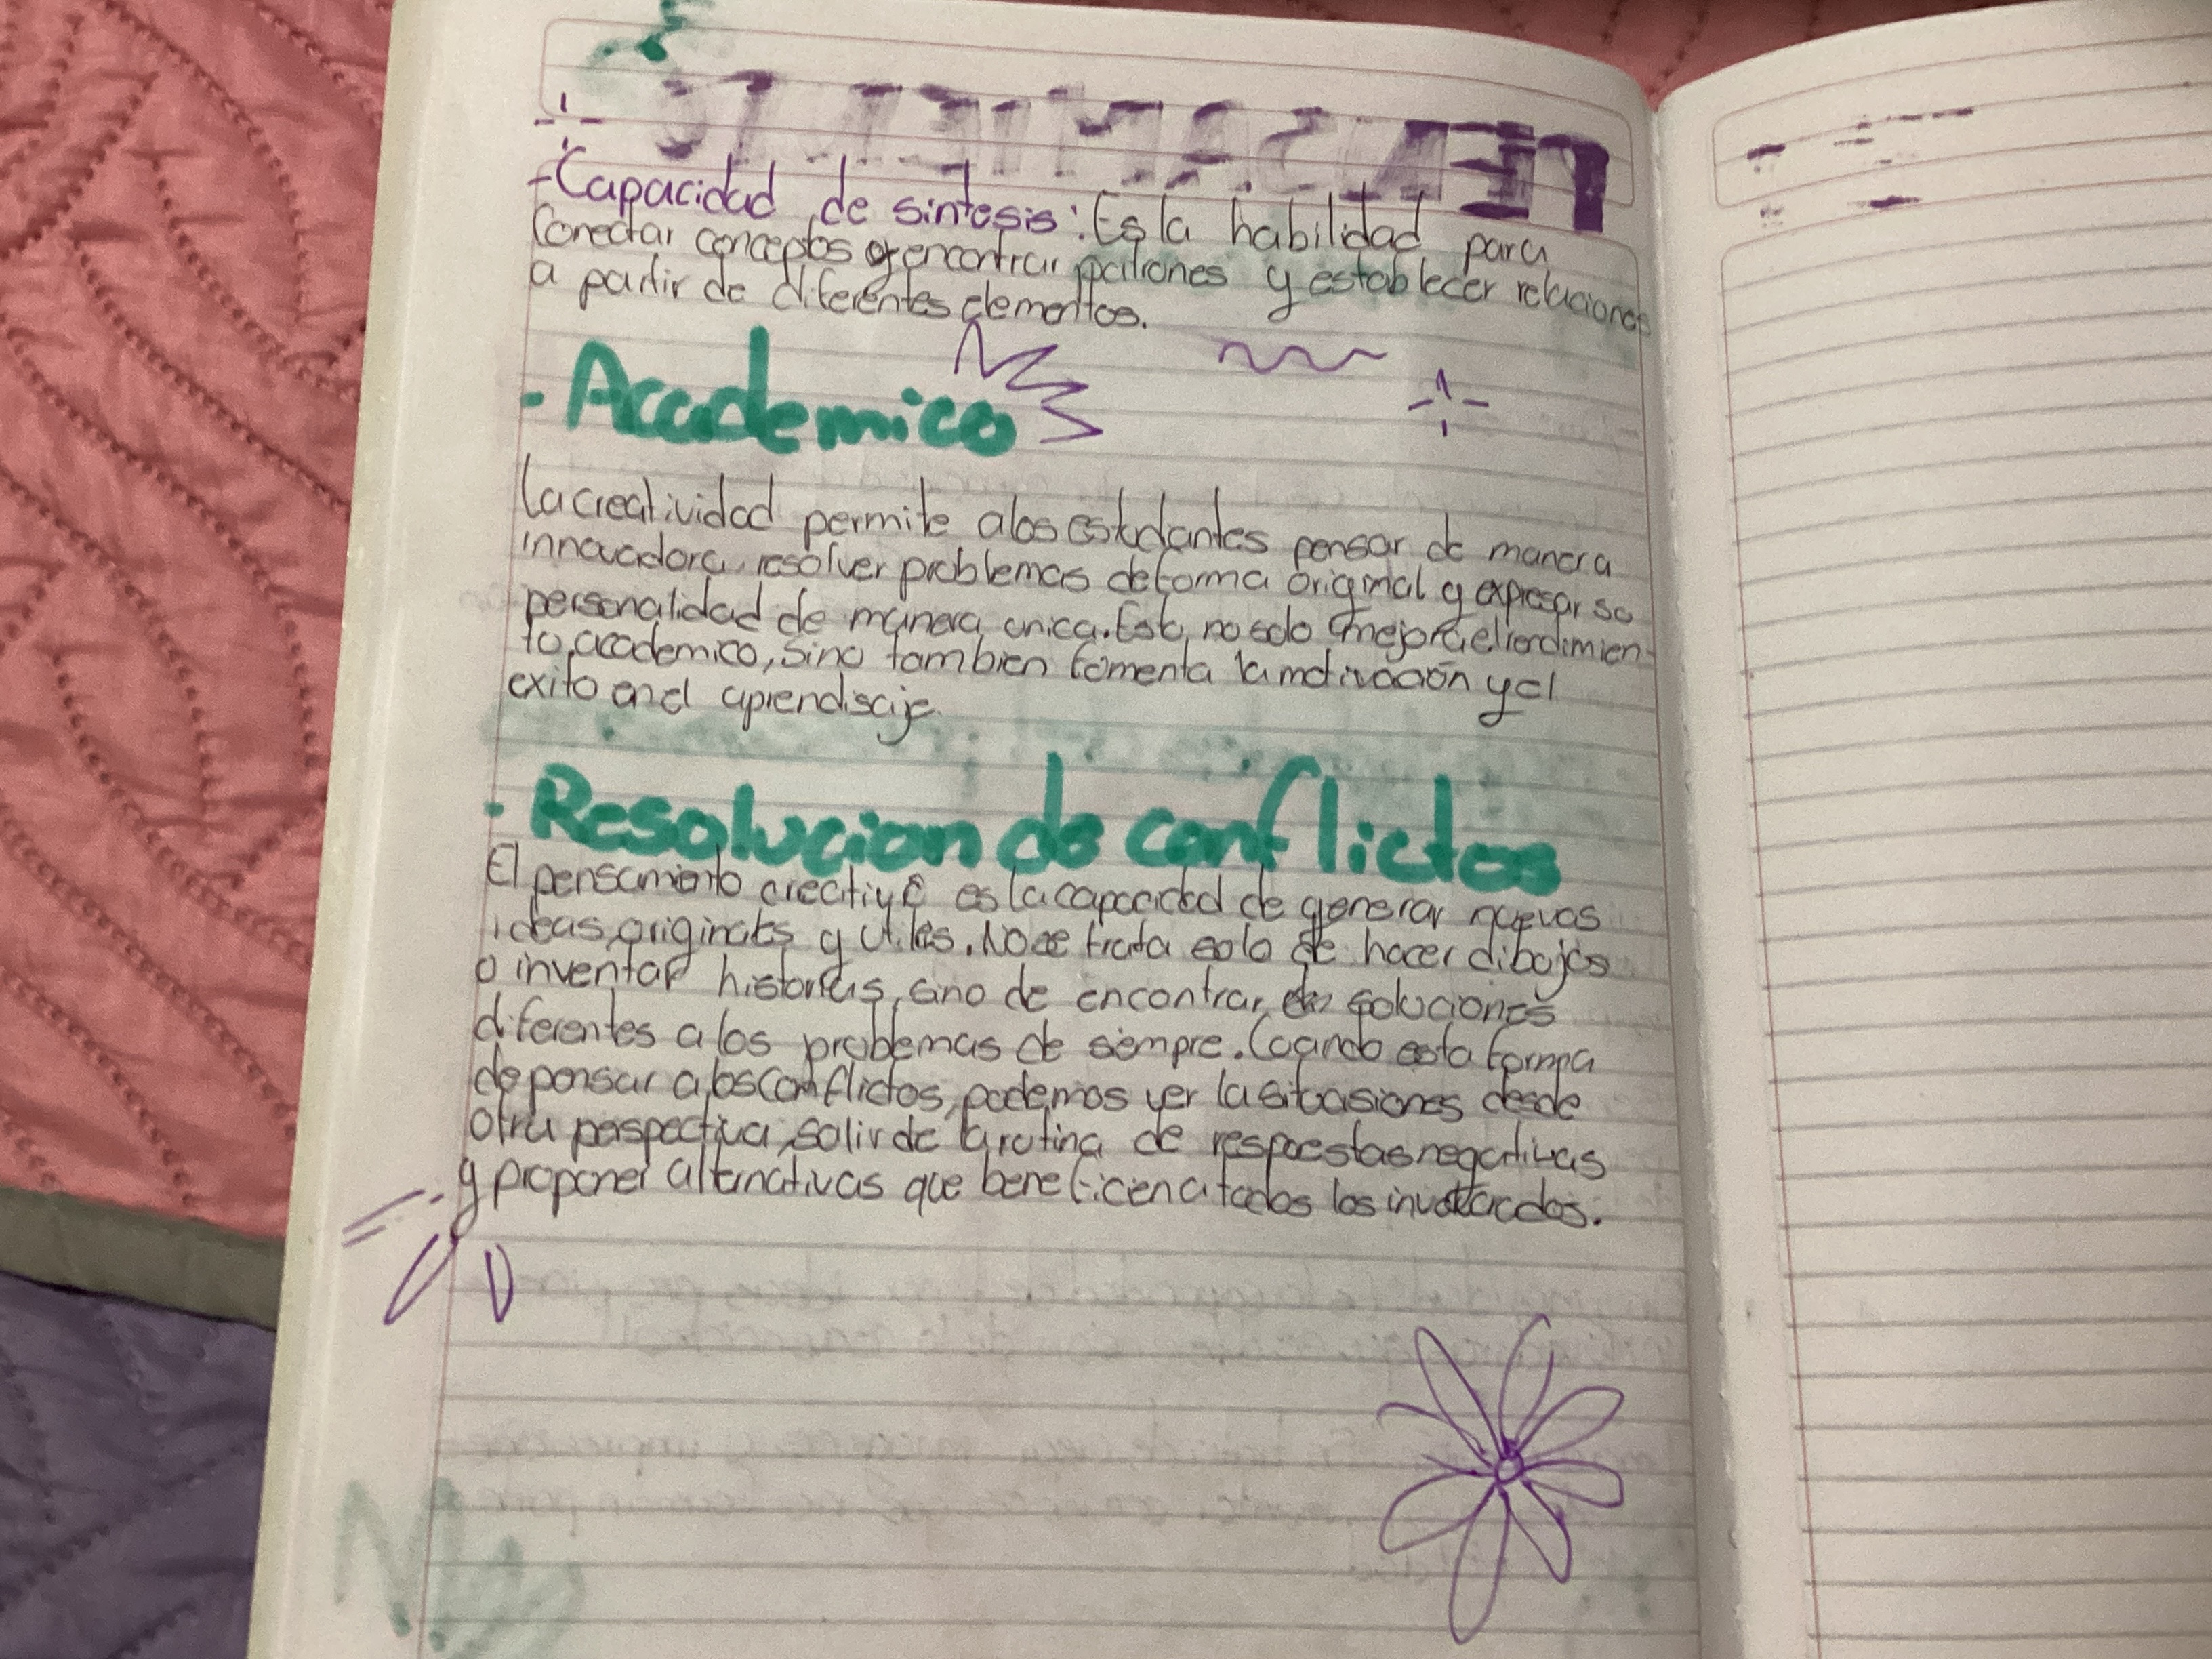 -Capacidad de sintesis: Es la habilidad para
Conectar conceptos encontrar patrones y establecer relaciones
a partir de diferentes elementos.
- Academico
La creatividad permite a los estudantes pensar de manera
innovadora, resolver problemas de forma original y expresar su
personalidad de manera unica. Esto, no solo mejora el rendimien-
to, academico, sino tambien fomenta la motivación y el
exito en el aprendisaje.
- Resolucion de conflictos
El pensamiento creativo es la capacidad de generar nuevas
ideas, originales y utiles. No se trata solo de hacer dibujos
o inventar historias, sino de encontrar soluciones
diferentes a los problemas de siempre. Cuando esta forma
de pensar a los conflictos, podemos ver la situasiones desde
otra perspectiva, salir de la rutina de respuestas negativas
y proponer alternativas que beneficien a todos los